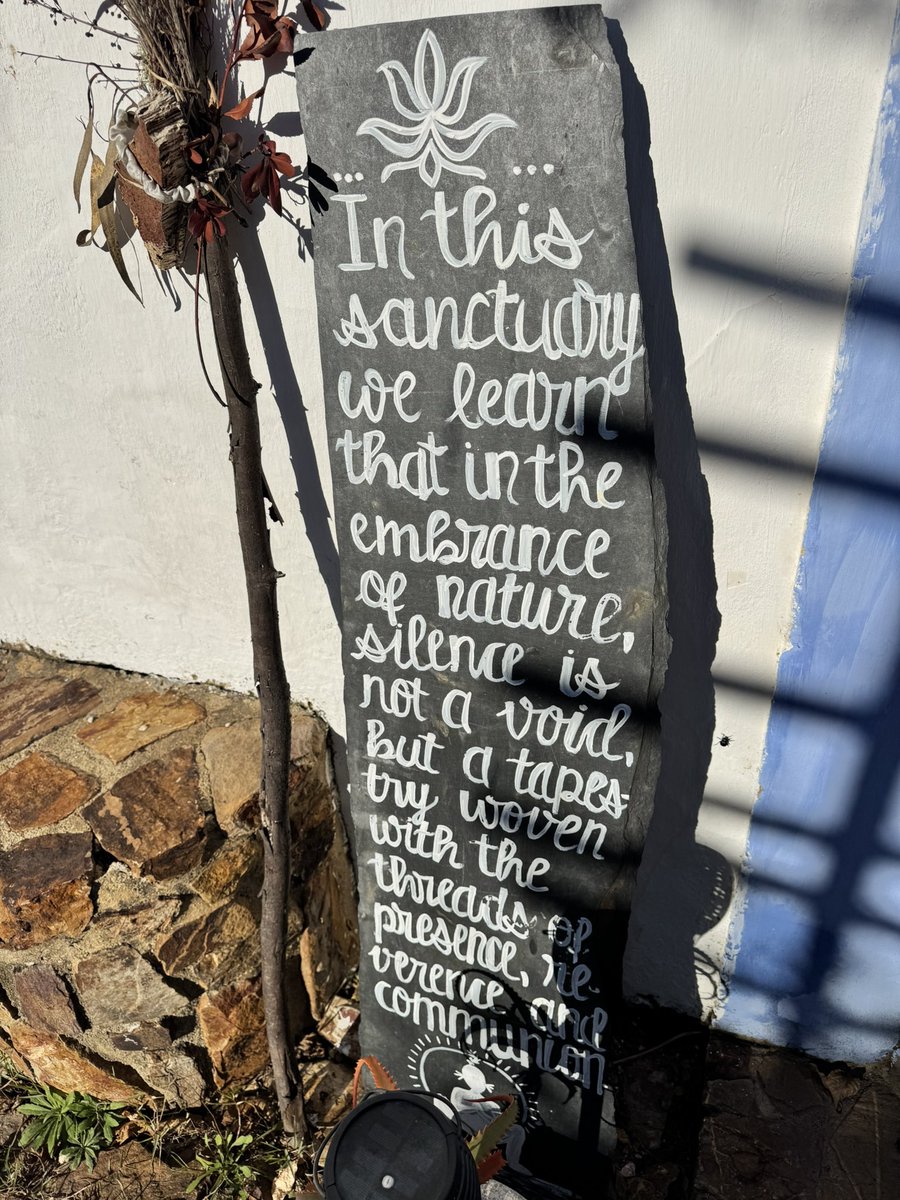 ... ...
In this
sanctuary
we learn
that in the
embrance
of nature,
silence is
not a void,
but a tapes-
try woven
with the
threads of
presence, re-
verence and
communion